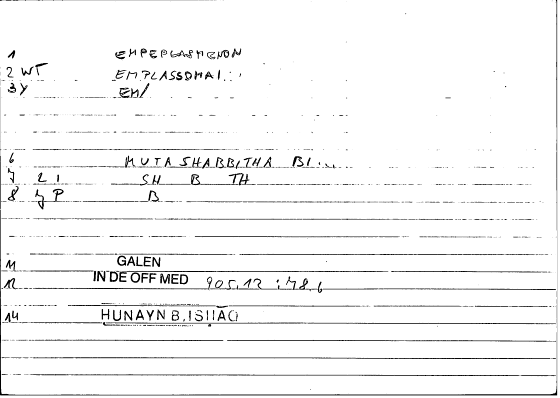 1 EMPEPLASMENON
2 WT EMPLASSOMAI..
3 Y EM/
6 MUTASHABBITHA BI...
7 21 SH B TH
8 7P B
11 GALEN
12 IN DE OFF MED 905.12 : 78.6
14 HUNAYN B.ISHĀQ